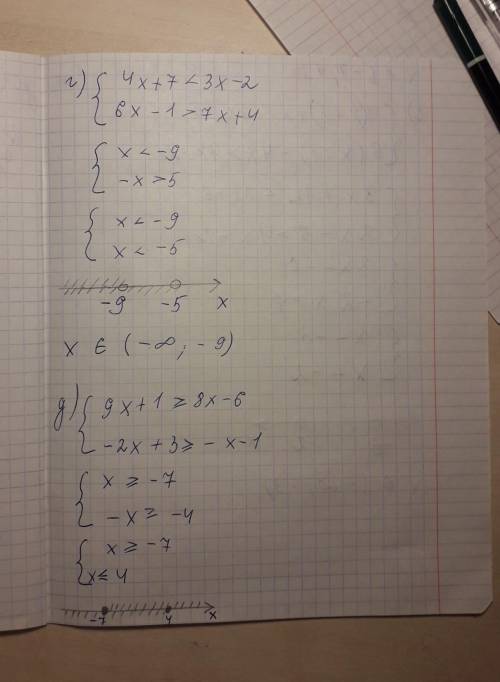 г) { 4x+7 < 3x-2
6x-1 > 7x+4
{ x < -9
-x > 5
{ x < -9
x < -5
-9 -5 x
x ∈ (-∞; -9)
д) { 9x+1 ≥ 8x-6
-2x+3 ≥ -x-1
{ x ≥ -7
-x ≥ -4
{ x ≥ -7
x ≤ 4
-7 4 x